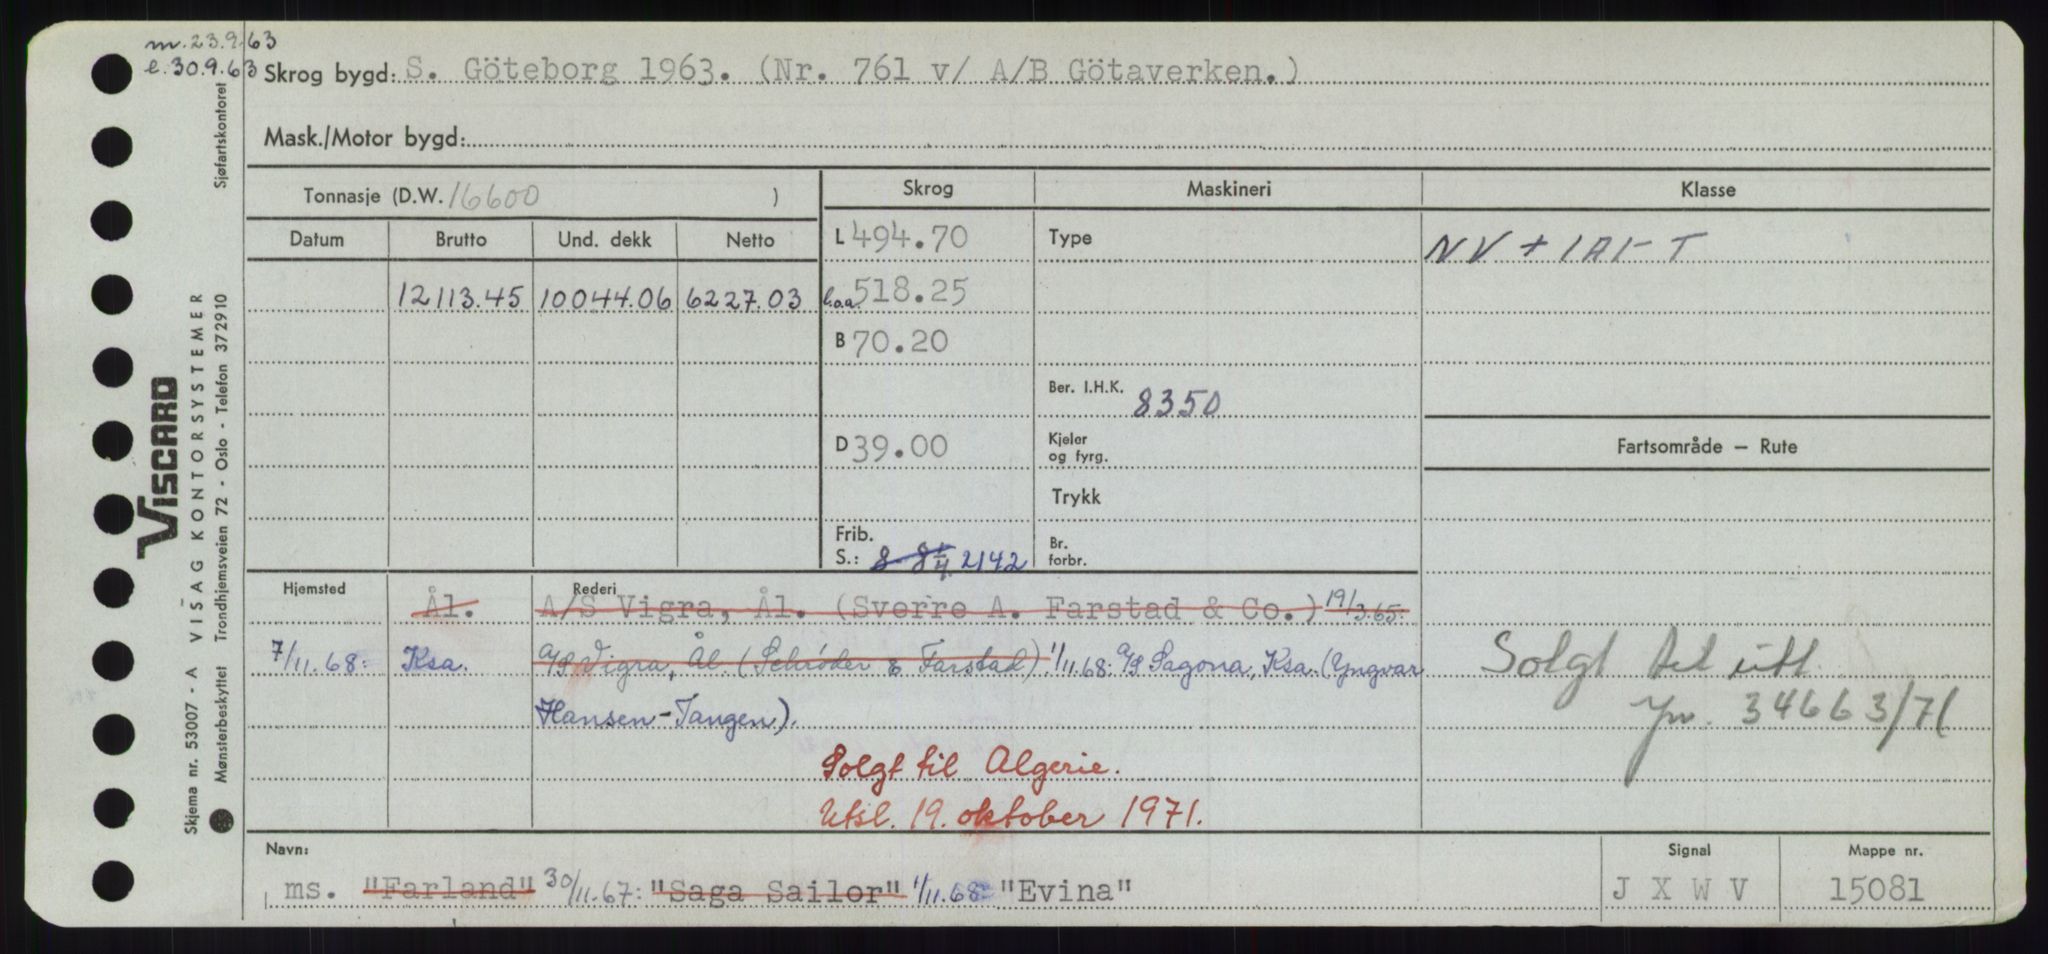 m. 23.9.63
e. 30.9.63 Skrog bygd: S. Göteborg 1963. (Nr. 761 v/ A/B Götaverken.)
Mask./Motor bygd:
Tonnasje (D.W. 16600 )
Skrog Maskineri Klasse
Datum Brutto Und. dekk Netto
L 494.70 Type NV + 1A1- T
12113.45 10044.06 6227.03 l.o.a. 518.25
B 70.20
Ber. I.H.K. 8350
D 39.00 Kjeler
og fyrg.
Fartsområde — Rute
Trykk
Frib.
S.: 8-8 1/4 2142 Br.
forbr.
Hjemsted Rederi
Ål. A/S Vigra, Ål. (Sverre A. Farstad & Co.) 19/3.65:
7/11.68: Ksa. A/S Vigra, Ål. (Schrøder & Farstad) 1/11.68: A/S Sagona, Ksa. (Yngvar
Hansen-Tangen).
Solgt til utl.
Jnr. 34663/71
Solgt til Algerie.
Utsl. 19. oktober 1971.
Navn: Signal Mappe nr.
ms. "Farland" 30/11.67: "Saga Sailor" 1/11.68: "Evina" J X W V 15081
VISCARD
Skjema nr. 53007 - A VISAG KONTORSYSTEMER
Mønsterbeskyttet Trondhjemsveien 72 - Oslo - Telefon 372910 Sjøfartskontoret